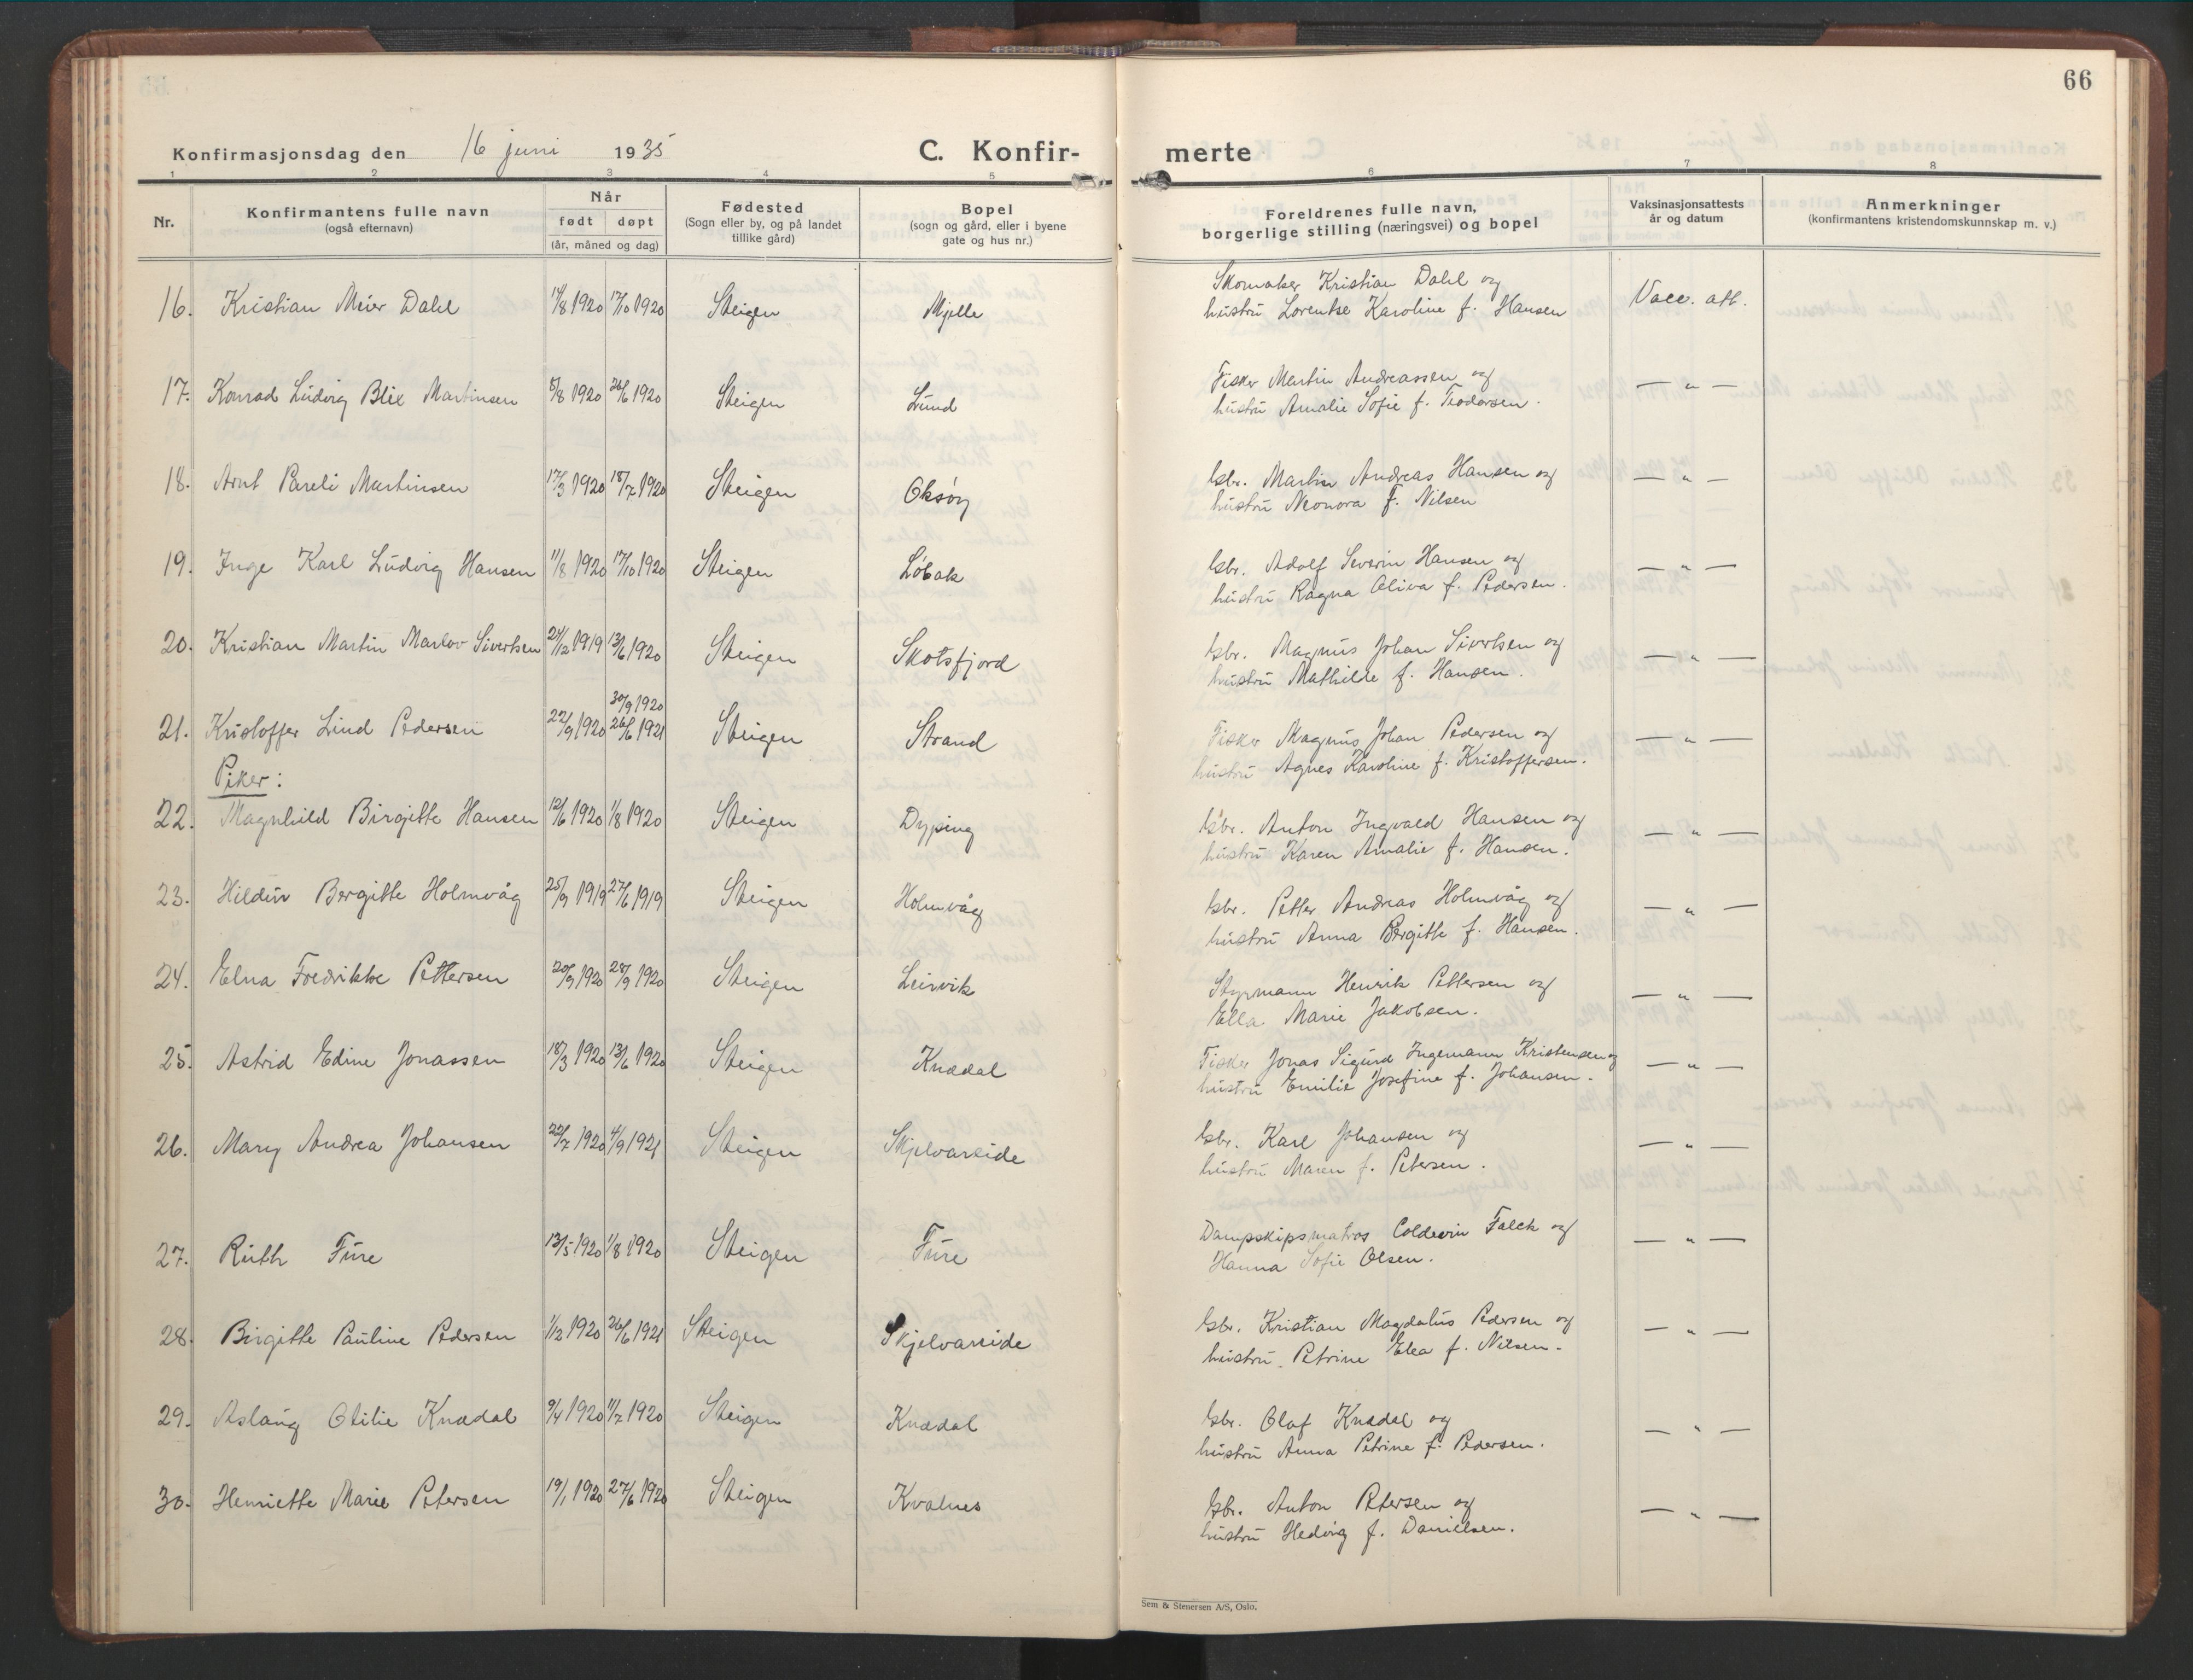 66
Konfirmasjonsdag den 16 juni 1935
C. Konfir-
merte
1 2 3 4 5 6 7 8
Nr.
Konfirmantens fulle navn
(også efternavn)
Når
født døpt
(år, måned og dag)
Fødested
(Sogn eller by, og på landet
tillike gård)
Bopel
(sogn og gård, eller i byene
gate og hus nr.)
Foreldrenes fulle navn,
borgerlige stilling (næringsvei) og bopel
Vaksinasjonsattests
år og datum
Anmerkninger
(konfirmantens kristendomskunnskap m. v.)
16. Kristian Meier Dahl 14/8 1920 17/10 1920 Steigen Mjelle Skomaker Kristian Dahl og
hustru Lorentse Karoline f. Hansen Vacc. att.
17. Konrad Ludvig Blix Martinsen 8/8 1920 26/6 1920 Steigen Lund Fisker Martin Andreassen og
hustru Amalie Sofie f. Teodorsen. — " —
18. Arnt Pareli Martinsen 17/3 1920 18/7 1920 Steigen Oksøy Gbr. Martin Andreas Hansen og
hustru Neonora f. Nilsen — " —
19. Inge Karl Ludvig Hansen 11/8 1920 17/10 1920 Steigen Løbak Gbr. Adolf Severin Hansen og
hustru Ragna Oliva f. Pedersen. — " —
20. Kristian Martin Marlov Sivertsen 24/12 1919 13/6 1920 Steigen Skotsfjord Gbr. Magnus Johan Sivertsen og
hustru Mathilde f. Hansen. — " —
30/9 1920
21. Kristoffer Lind Pedersen 22/9 1920 26/6 1921 Steigen Strand Fisker Magnus Johan Pedersen og
hustru Agnes Karoline f. Kristoffersen. — " —
Piker:
22. Magnhild Birgitte Hansen 12/6 1920 1/8 1920 Steigen Dyping Gbr. Anton Ingvald Hansen og
hustru Karen Amalie f. Hansen. — " —
23. Hildur Bergitte Holmvåg 25/9 1919 27/6 1919 Steigen Holmvåg Gbr. Petter Andreas Holmvåg og
hustru Anna Bergitte f. Hansen. — " —
24. Elna Fredrikke Pettersen 20/9 1920 28/9 1920 Steigen Leirvik Styrmann Henrik Pettersen og
Ella Marie Jakobsen. — " —
25. Astrid Edine Jonassen 18/3 1920 13/6 1920 Steigen Knædal Fisker Jonas Sigurd Ingemann Kristensen og
hustru Emilie Josefine f. Johansen. — " —
26. Mary Andrea Johansen 22/7 1920 4/9 1921 Steigen Skjelvareide Gbr. Karl Johansen og
hustru Maren f. Petersen. — " —
27. Ruth Fure 13/5 1920 1/8 1920 Steigen Fure Dampskipsmatros Coldevin Falch og
Hanna Sofie Olsen. — " —
28. Birgitte Pauline Pedersen 1/12 1920 26/6 1921 Steigen Skjelvareide Gbr. Kristian Magdalus Pedersen og
hustru Petrine Elea f. Nilsen. — " —
29. Aslaug Otilie Knædal 9/4 1920 11/7 1920 Steigen Knædal Gbr. Olaf Knædal og
hustru Anna Petrine f. Pedersen. — " —
30. Henriette Marie Petersen 19/1 1920 27/6 1920 Steigen Kvalnes Gbr. Anton Petersen og
hustru Hedvig f. Danielsen. — " —
Sem & Stenersen A/S, Oslo.